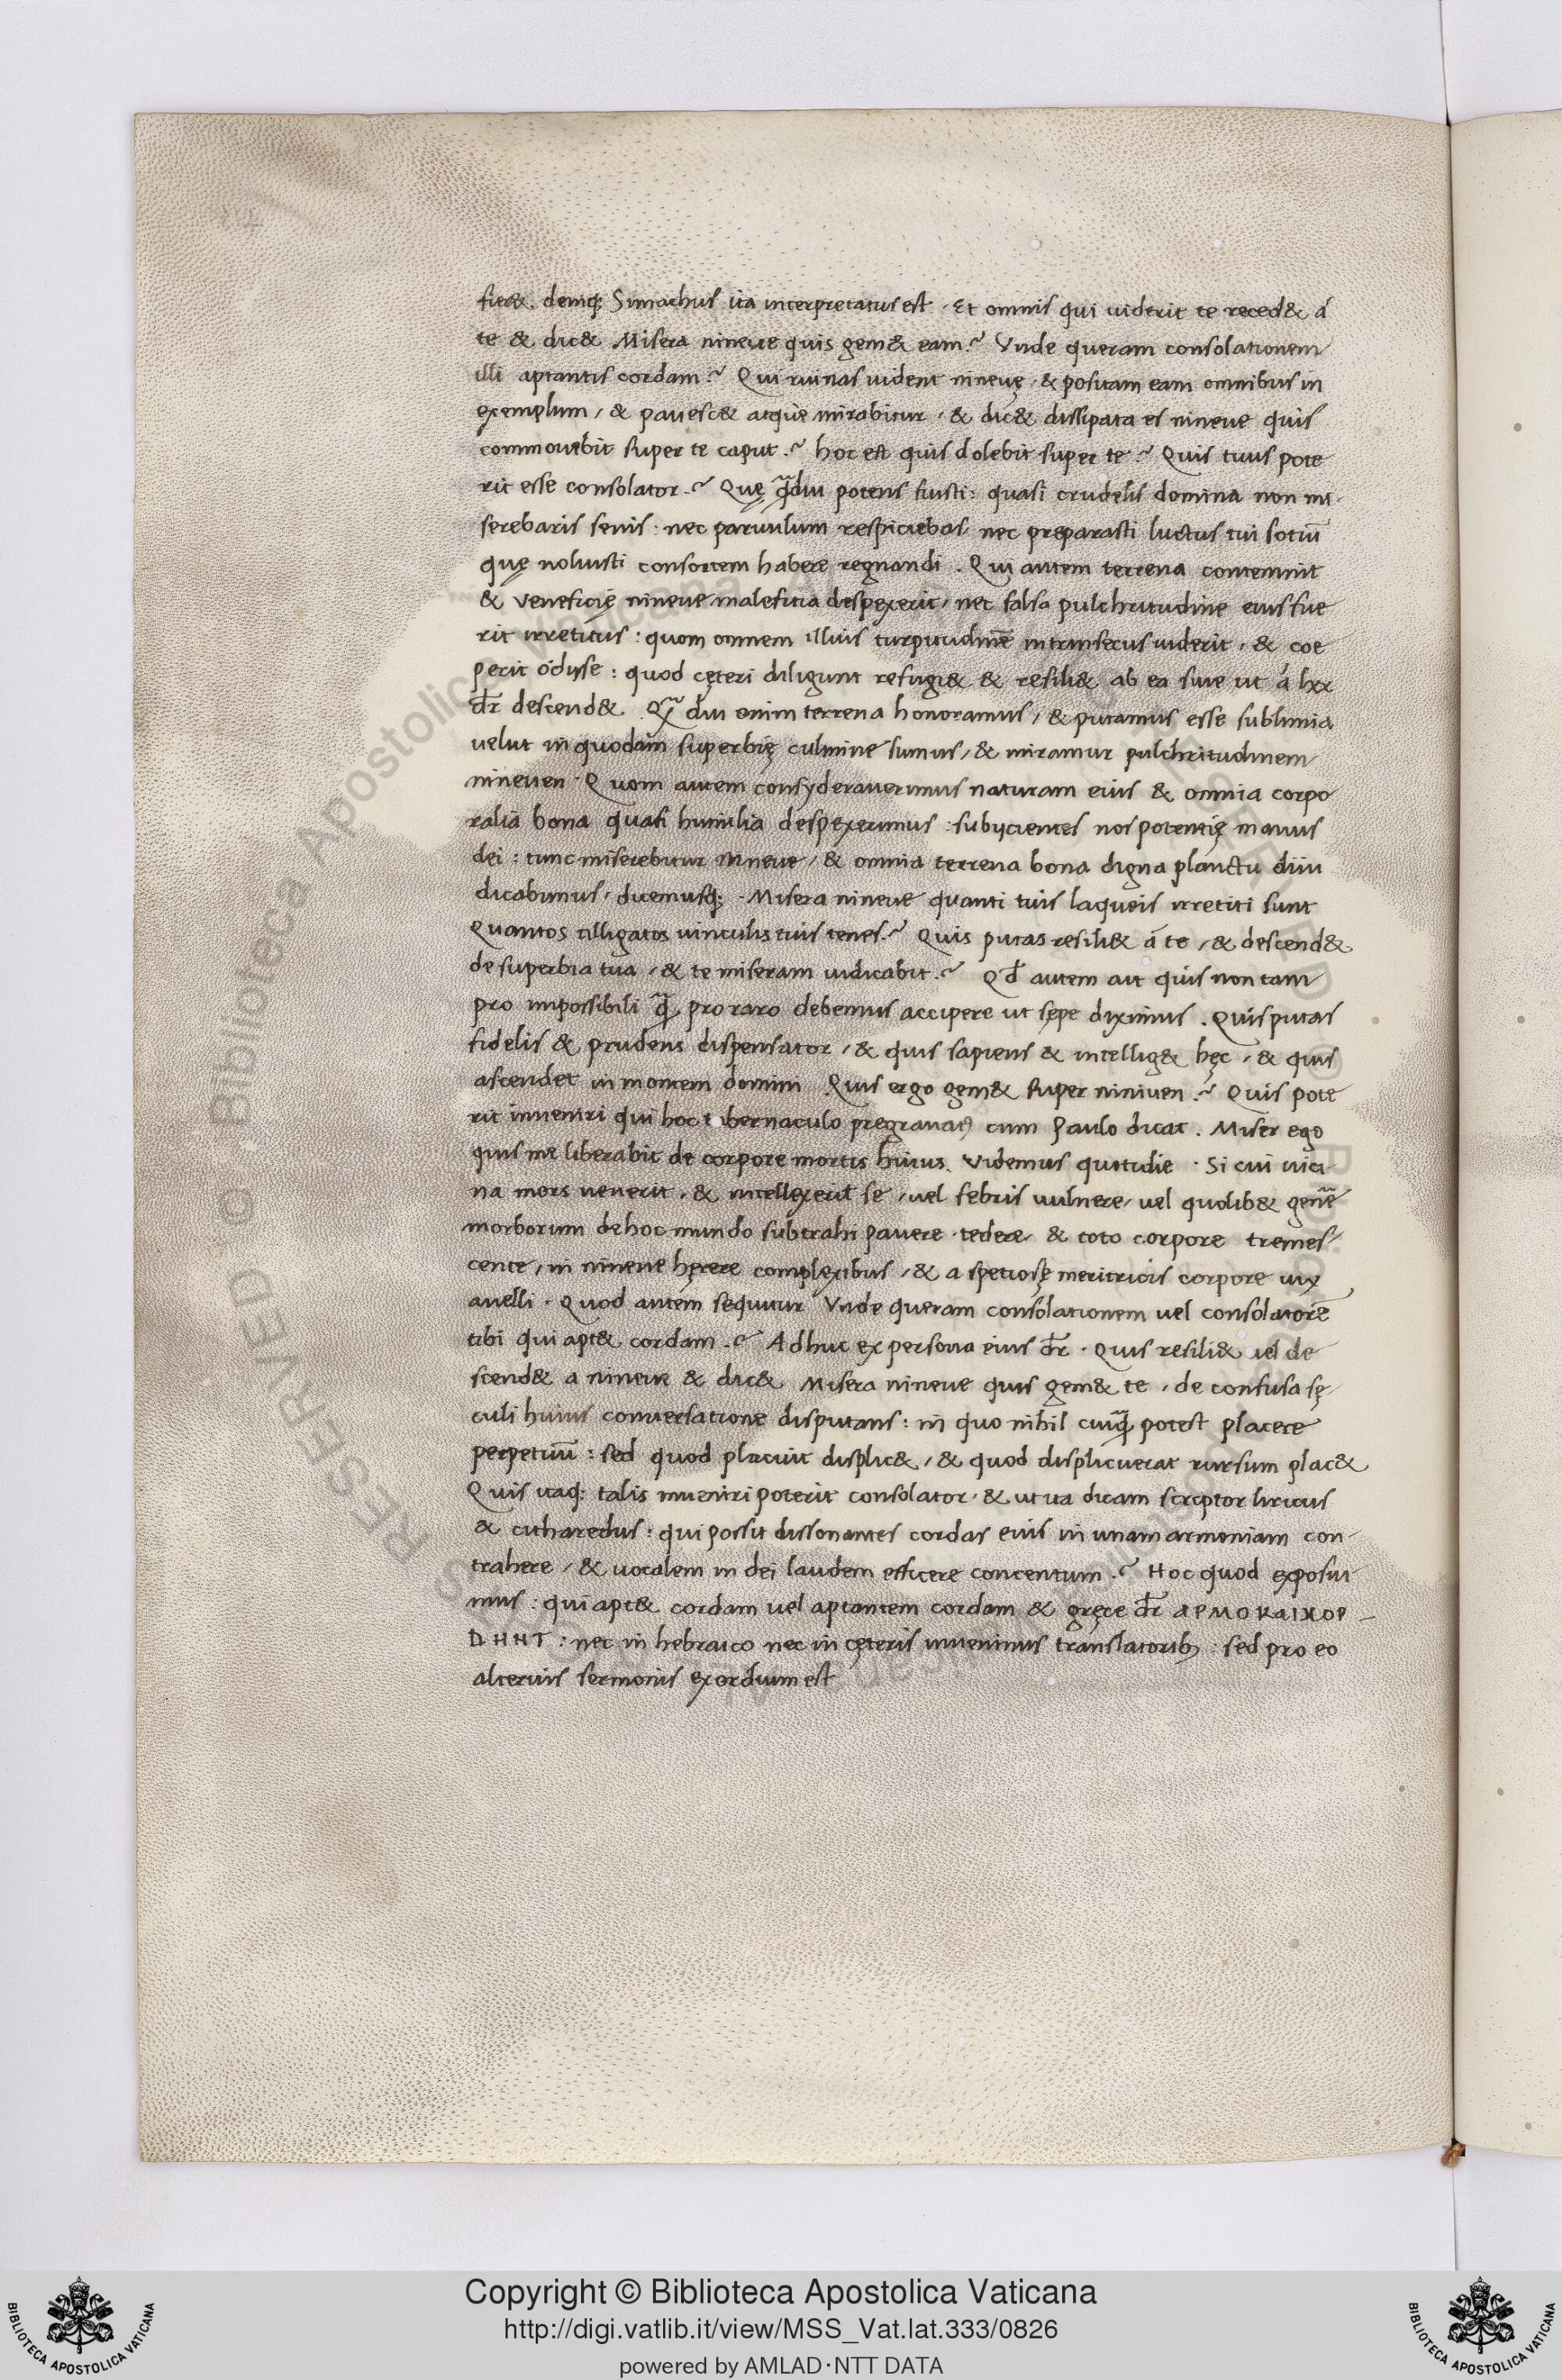 fiet&. deniq; Simachus ita interpretatus est. Et omnis qui uiderit te reced& á
te & dic& Misera nineue quis gem& eam? Vnde queram consolationem
illi aptantis cordam? Qui ruinas uident nineuę, & positam eam omnibus in
exemplum, & pauesc& atque mirabitur, & dic& dissipata es nineue quis
commouebit super te caput? hoc est quis dolebit super te? Quis tuus pote
rit esse consolator? Quę q̄diu potens fuisti: quasi crudelis domina non mi-
serebaris senis. nec paruulum respiciebas nec preparasti luctus tui sotiū
quę noluisti consortem habere regnandi. Qui autem terrena contemnit
& veneficię nineue maleficia despexerit, nec falsa pulchritudine eius fue
rit irretitus: quom omnem illius turpitudinē intrinsecus uiderit, & coe
perit odisse: quod cęteri diligunt refugi& & resili& ab ea siue ut á lxx
dr̄ descend& Q̄ diu enim terrena honoramus, & putamus esse sublimia
uelut in quodam superbię culmine sumus, & miramur pulchritudinem
nineuen. Quom autem consyderauerimus naturam eius & omnia corpo
ralia bona quasi humilia despexerimus: subijcientes nos potentię manus
dei: tunc miserebitur nineue, & omnia terrena bona digna planctu diiu
dicabimus, dicemusq;. Misera nineue quanti tuis laqueis irretiti sunt
Quantos alligatos uinculis tuis tenes? Quis putas resili& á te, & descend&
de superbia tua, & te miseram iudicabit? Qd̄ autem ait quis non tam
pro impossibili q̄ pro raro debemus accipere ut sępe diximus. Quis putas
fidelis & prudens dispensator, & quis sapiens & intellig& hęc, & quis
ascendet in montem domini Quis ergo gem& super niniuen? Quis pote
rit inueniri qui hoc tabernaculo pregrauatꝰ cum Paulo dicat. Miser ego
quis me liberabit de corpore mortis huius. Videmus quotidie. Si cui uici
na mors uenerit, & intellexerit se, uel febris uulnere, uel quolib& genē
morborum de hoc mundo subtrahi pauere. tedere & toto corpore tremes
cente, in nineue hęrere complexibus, & a spetiosę meritricis corpore uix
auelli. Quod autem sequitur Vnde queram consolationem uel consolatorē
tibi qui apt& cordam? Adhuc ex persona eius dr̄. Quis resili& uel de
scend& a nineue & dic& Misera nineue quis gem& te, de confusa sę
culi huius conuersatione disputans: in quo nihil cuiq̄ potest placere
perpetuū: sed quod placuit displic&, & quod displicuerat rursum plac&
Quis itaq; talis inueniri poterit consolator. & ut ita dicam scrptor liricus
& citharedus: qui possit dissonantes cordas eius in unam armoniam con-
trahere, & uocalem in dei laudem efficere concentum? Hoc quod exposui
mus: qui apt& cordam uel aptantem cordam & gręce dr̄ ΑΡΜΟΚΑΙΧΟΡ-
DHHT: nec in hebraico nec in cęteris inuenimus translatoribꝰ: sed pro eo
alterius sermonis exordium est
Copyright © Biblioteca Apostolica Vaticana
http://digi.vatlib.it/view/MSS_Vat.lat.333/0826
powered by AMLAD·NTT DATA